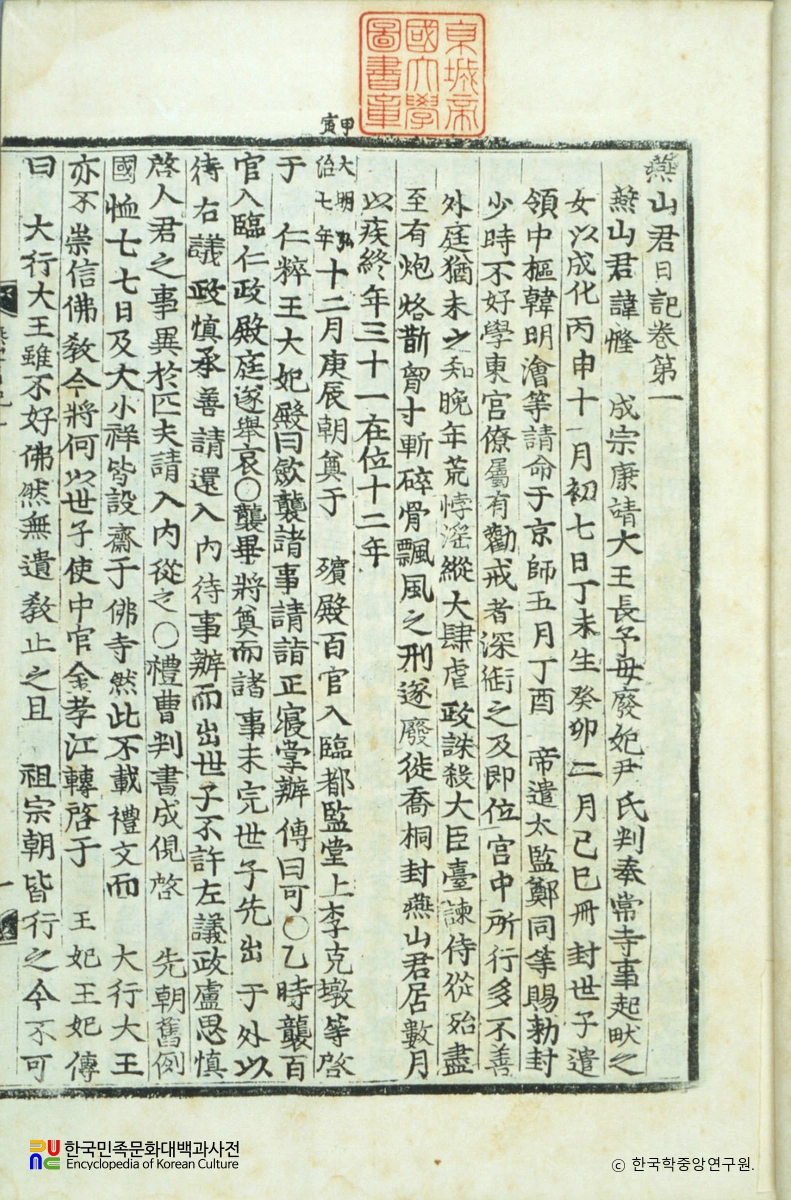 京城帝
國大學
圖書章
甲寅
燕山君日記卷第一
燕山君諱㦕 成宗康靖大王長子母廢妃尹氏判奉常寺事起畎之
女以成化丙申十一月初七日丁未生癸卯二月己巳冊封世子遣
領中樞韓明澮等請命于京師五月丁酉 帝遣太監鄭同等賜勅封
少時不好學東宮僚屬有勸戒者深銜之及即位宮中所行多不善
外庭猶未之知晩年荒悖滛縱大肆虐政誅殺大臣臺諫侍從殆盡
至有炮烙斮胷寸斬碎骨飄風之刑遂廢徙喬桐封燕山君居數月
以疾終年三十一在位十二年
大明弘治七年十二月庚辰朝奠于 殯殿百官入臨都監堂上李克墩等啓
于 仁粹王大妃殿曰歛襲諸事請詣正寢掌辦傳曰可○乙時襲百
官入臨仁政殿庭遂舉哀○襲畢將奠而諸事未完世子先出于外以
待右議政愼承善請還入內待事辦而出世子不許左議政盧思愼
啓人君之事異於匹夫請入內從之○禮曹判書成俔啓 先朝舊例
國恤七七日及大小祥皆設齋于佛寺然此不載禮文而 大行大王
亦不崇信佛敎今將何以世子使中官金孝江轉啓于 王妃王妃傳
曰 大行大王雖不好佛然無遺敎止之且 祖宗朝皆行之今不可
한국민족문화대백과사전
Encyclopedia of Korean Culture
ⓒ 한국학중앙연구원.